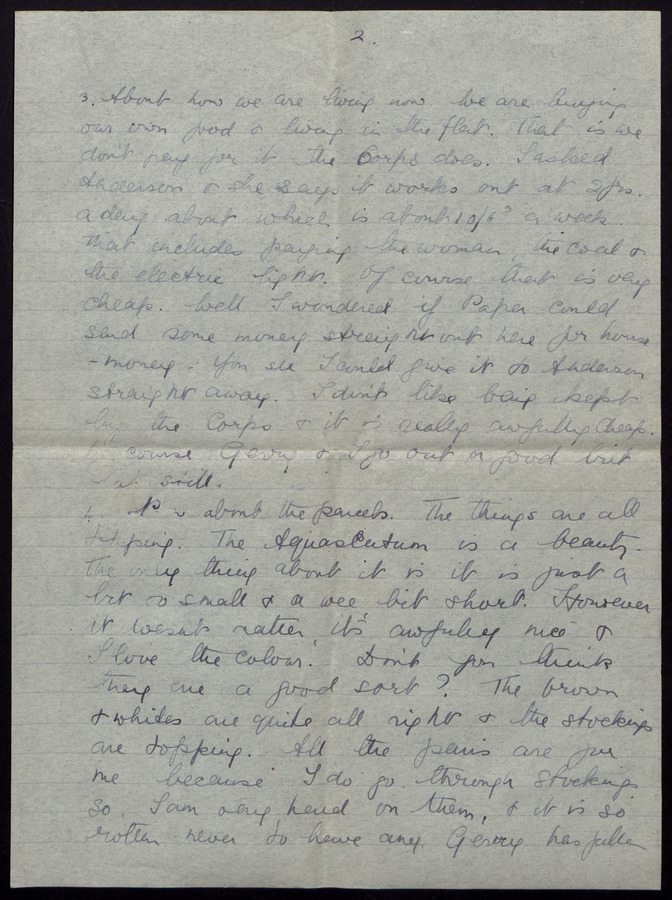 2.
3. About how we are living now. We are buying
our own food & living in the flat. That is we
don't pay for it the Corps does. I asked
Anderson & she says it works out at 2frs.
a day about which is about 10/6 a week.
That includes paying the woman, the coal &
the electric light. Of course that is very
cheap. Well I wondered if Paper could
send some money straight out here for house
-money. You see I could give it to Anderson
straight away. I don't like being kept
the Corps & it is really awfully cheap.
course Gerry & I go out a good bit
still.
4. about the parcels. The things are all
The Aquascutum is a beauty.
The only thing about it is it is just a
bit so small & a wee bit short. However
it doesnt matter, it's awfully nice &
I love the colour. Don't you think
they are a good sort? The brown
& whites are quite all right & the stockings
are topping. All the pairs are for
me because I do go through stockings
so. I am very hard on them, & it is so
rotten never to have any. Gerry has fallen